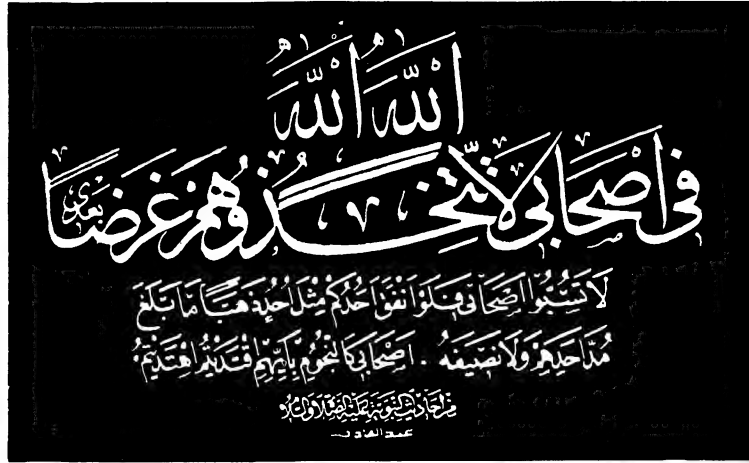 الله الله
فى اصحابى لا تتخذوهم غرضا بعدى
لا تسبوا اصحابى فلو انفق احدكم مثل احد ذهبا ما بلغ
مد احدهم ولا نصيفه . اصحابى كالنجوم بايهم اقتديتم اهتديتم
من احاديث النبوية عليه الصلاة والسلام